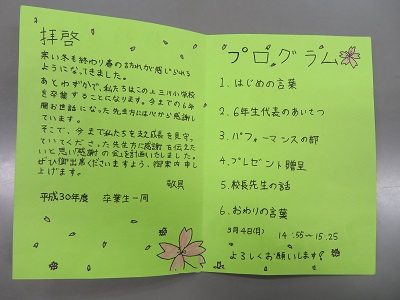 拝啓
寒い冬も終わり春の訪れが感じられる
ようになってきました。
あとわずかで、私たちはこの上三川小学校
を卒業することになります。今までの6年
間お世話になった先生方には心から感謝し
ています。
そこで、今まで私たちを支え成長を見守っ
ていてくださった先生方に感謝を伝えたい
と思い「感謝の会」を計画いたしました。
ぜひ御出席くださいますよう、御案内申し
上げます。
敬具
平成30年度 卒業生一同
プログラム
1.はじめの言葉
2.6年生代表のあいさつ
3.パフォーマンスの部
4.プレゼント贈呈
5.校長先生の話
6.おわりの言葉
3月4日(月) 14:55〜15:25
よろしくお願いします!